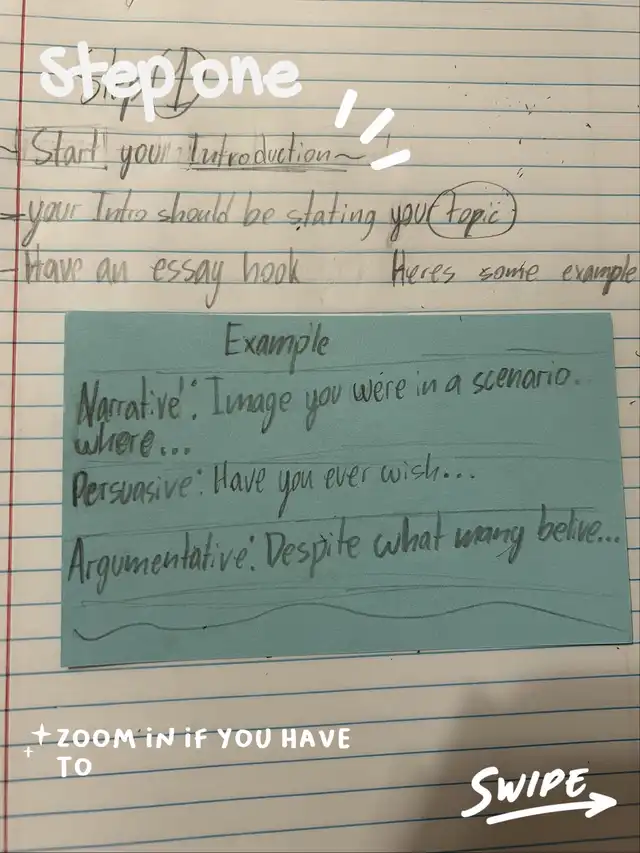 Step one
Step 1
Start your Introduction~
your Intro should be stating your topic
Have an essay hook Heres some example
Example
Narrative: Image you were in a scenario.
where...
Persuasive: Have you ever wish...
Argumentative: Despite what many belive...
ZOOM IN IF YOU HAVE
TO
SWIPE